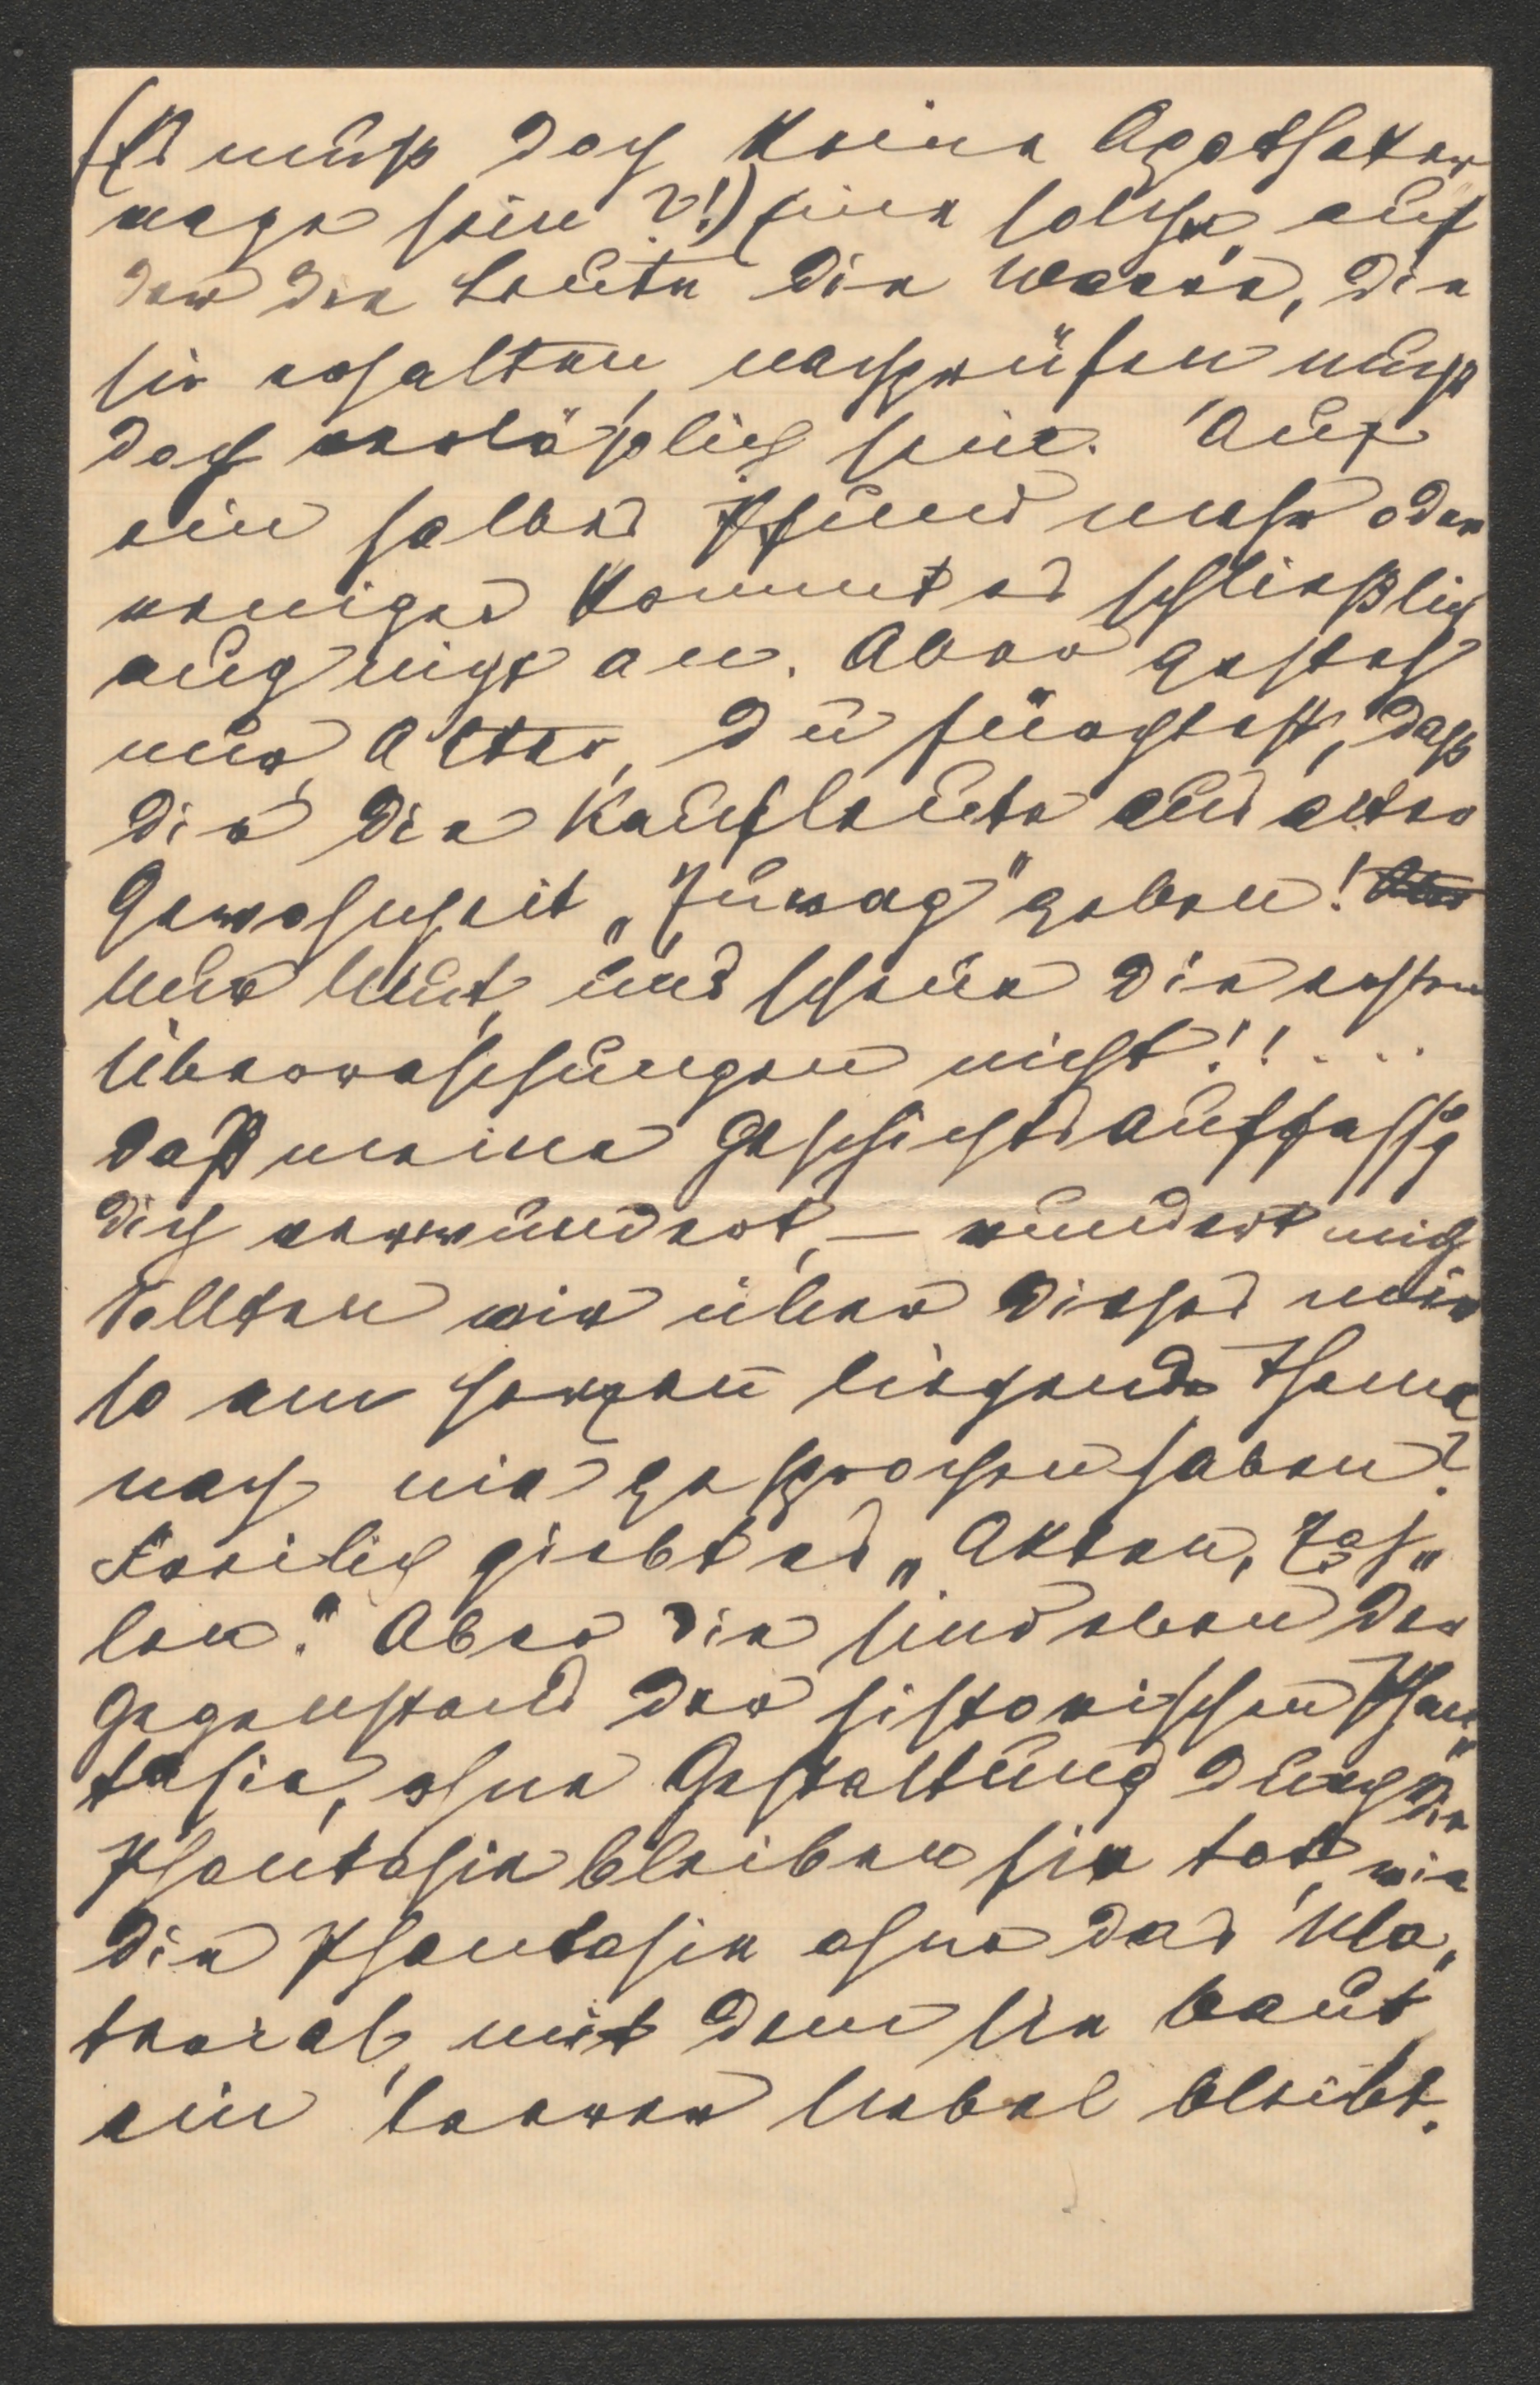 (Es muss doch keine Apotheker
wage sein?!) Eine solche, auf
der die Leute die Waare, die
sie erhalten, nachprüfen muss
doch verlässlich sein. Auf
ein halbes Pfund mehr oder
weniger kommt es schließlich
auch nicht an. Aber gesteh
nur, Alter, Du fürchtest, dass
Dir die Kaufleute aus alter
Gewohnheit „Zuwag" geben!
Nur Mut, und scheue die ersten
Überraschungen nicht!! ...
Daß meine Geschichtsauffassg
Dich verwundert, — wundert mich
Sollten wir über dieses mir
so am Herzen liegende Thema
noch nie gesprochen haben?
Freilich giebt es „Akten, Zah„
len". Aber die sind eben der
Gegenstand der historischen Phan„
tasie, ohne Gestaltung durch die
Phantasie bleiben sie tot, wie
die Phantasie ohne das Ma„
terial, mit dem sie baut,
ein leerer Nebel bleibt.